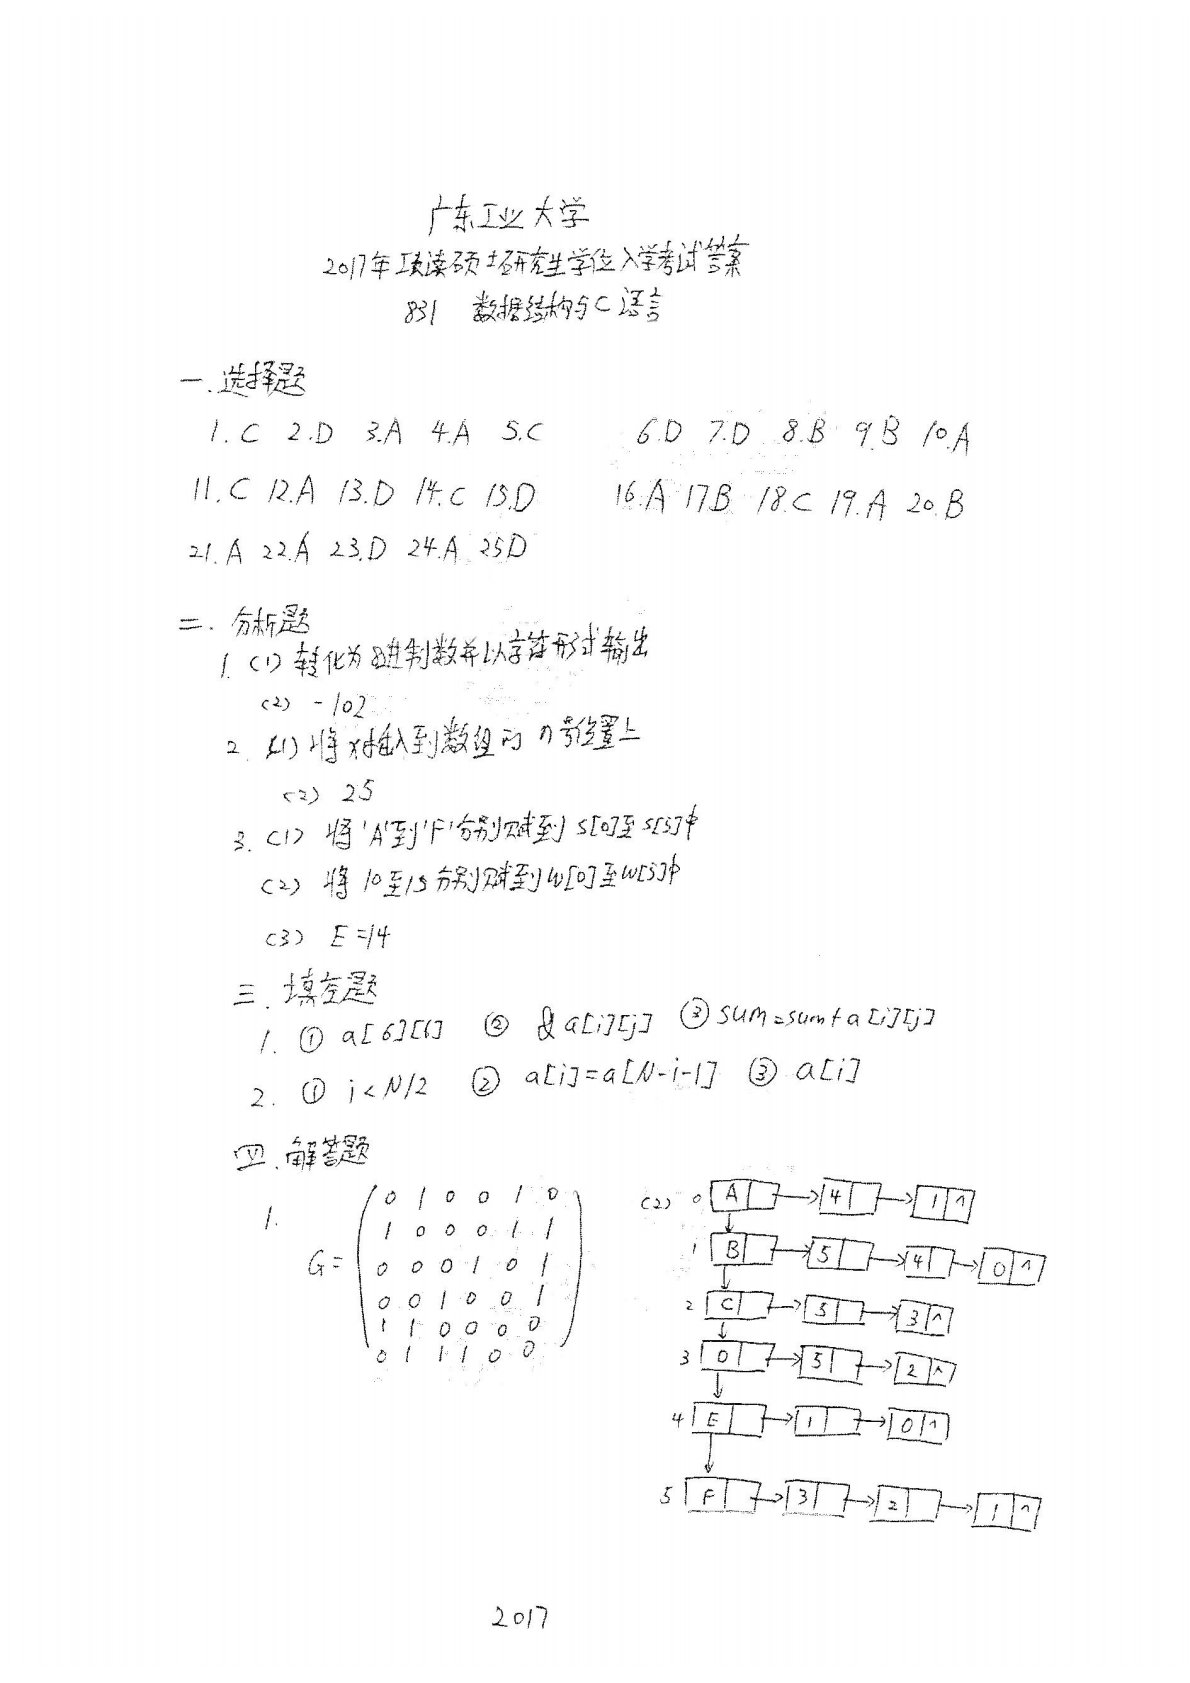 广东工业大学
2017年攻读硕士研究生学位入学考试答案
831 数据结构与C语言
一.选择题
1.C 2.D 3.A 4.A 5.C 6.D 7.D 8.B 9.B 10.A
11.C 12.A 13.D 14.C 15.D 16.A 17B 18.C 19.A 20.B
21.A 22.A 23.D 24.A 25D
二.分析题
1.(1)转化为8进制数并以字符形式输出
(2) -102
2.(1)将x插入到数组的n号位置上
(2) 25
3.(1) 将'A'到'F'分别赋到s[0]至s[5]中
(2) 将10至15分别赋到w[0]至w[5]中
(3) E=14
三.填空题
1. ① a[6][6] ② &a[i][j] ③ sum=sum+a[i][j]
2. ① i<N/2 ② a[i]=a[N-i-1] ③ a[i]
四.解答题
1.
G=
0 1 0 0 1 0
1 0 0 0 1 1
0 0 0 1 0 1
0 0 1 0 0 1
1 1 0 0 0 0
0 1 1 1 0 0
(2) 0 A 4 1 ^
1 B 5 4 0 ^
2 C 5 3 ^
3 D 5 2 ^
4 E 1 0 ^
5 F 3 2 1 ^
2017